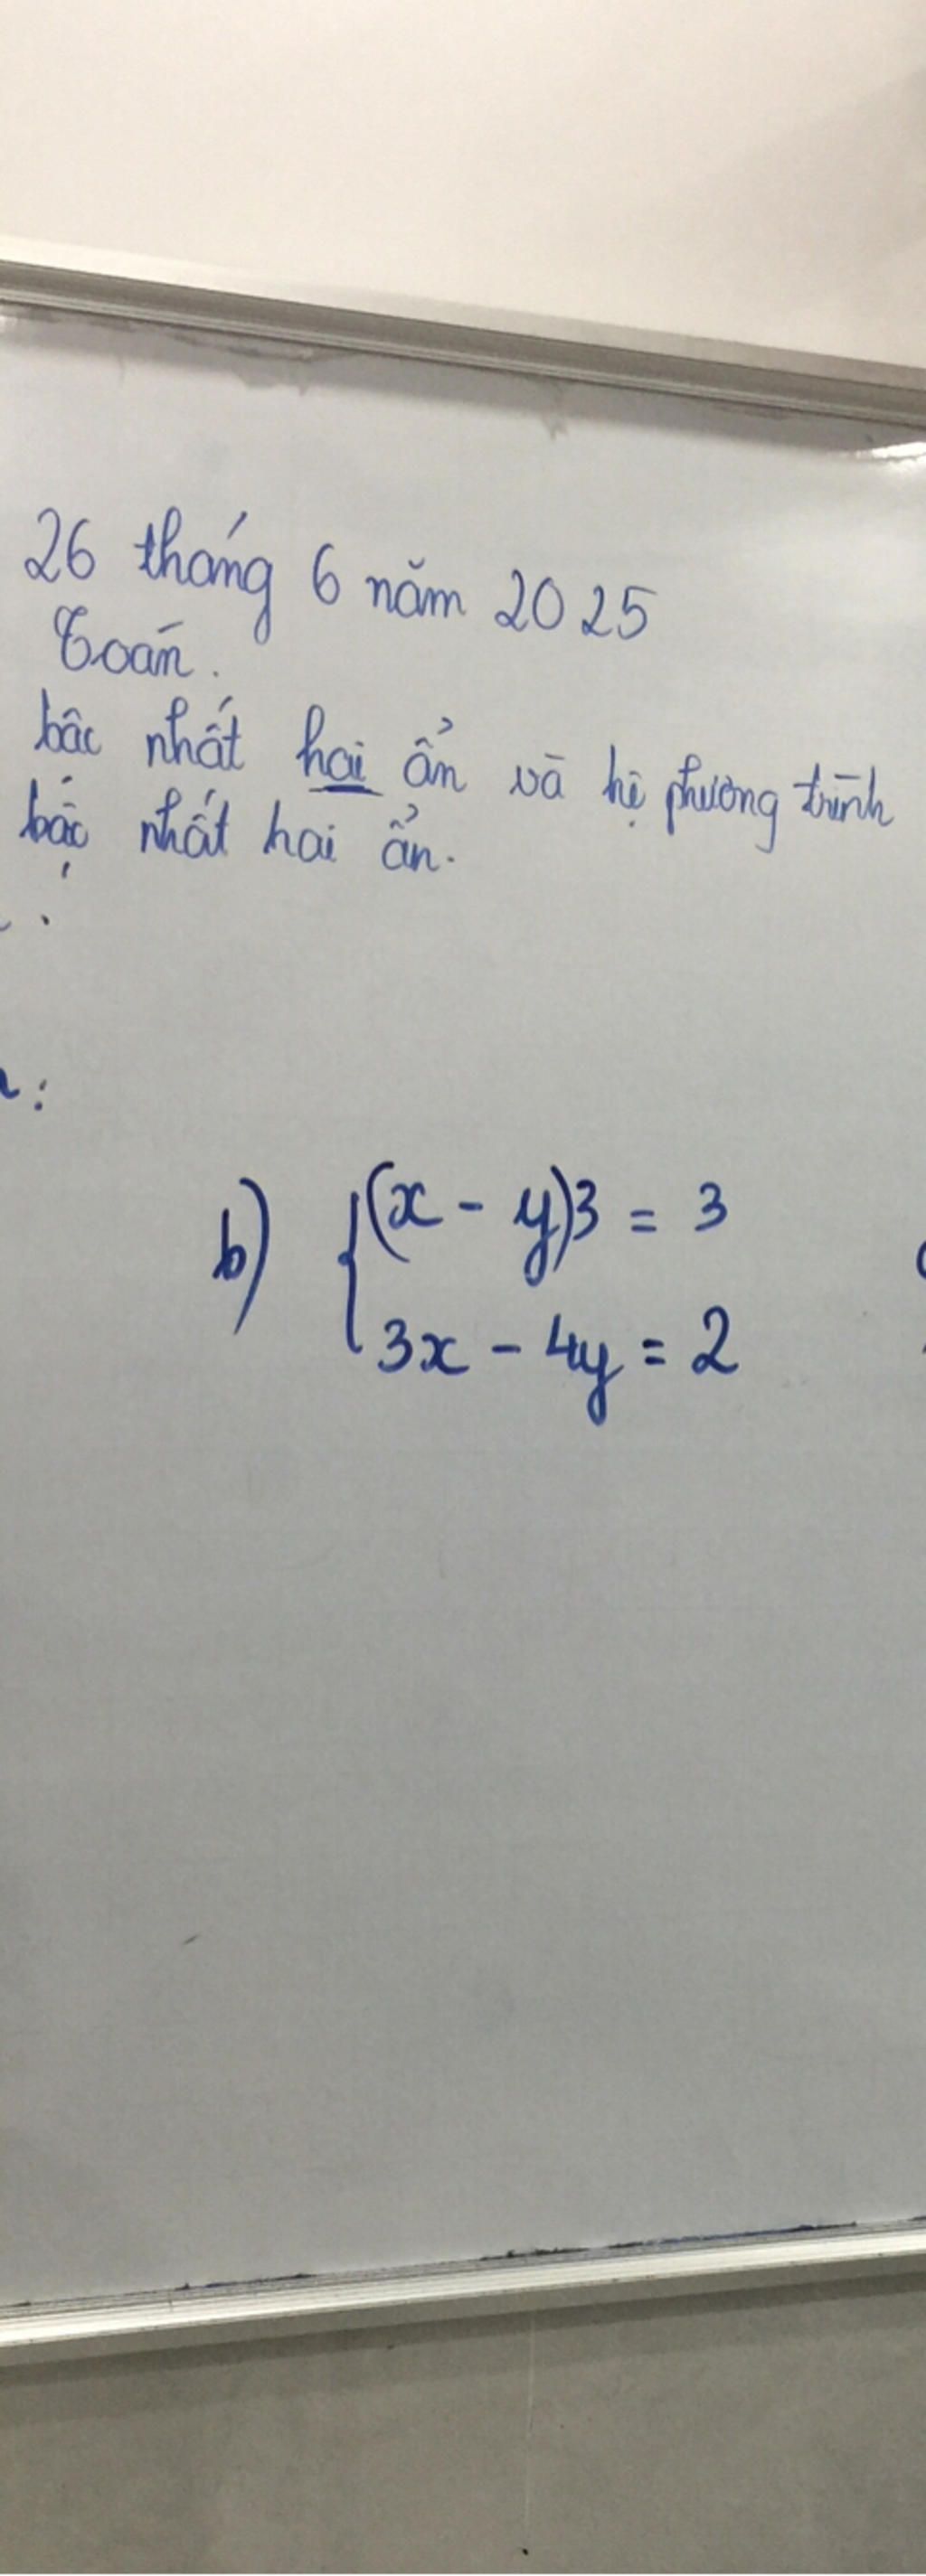 26 tháng 6 năm 2025
Toán.
bậc nhất hai ẩn và hệ phương trình
bậc nhất hai ẩn.
b) { (x - y)3 = 3
3x - 4y = 2